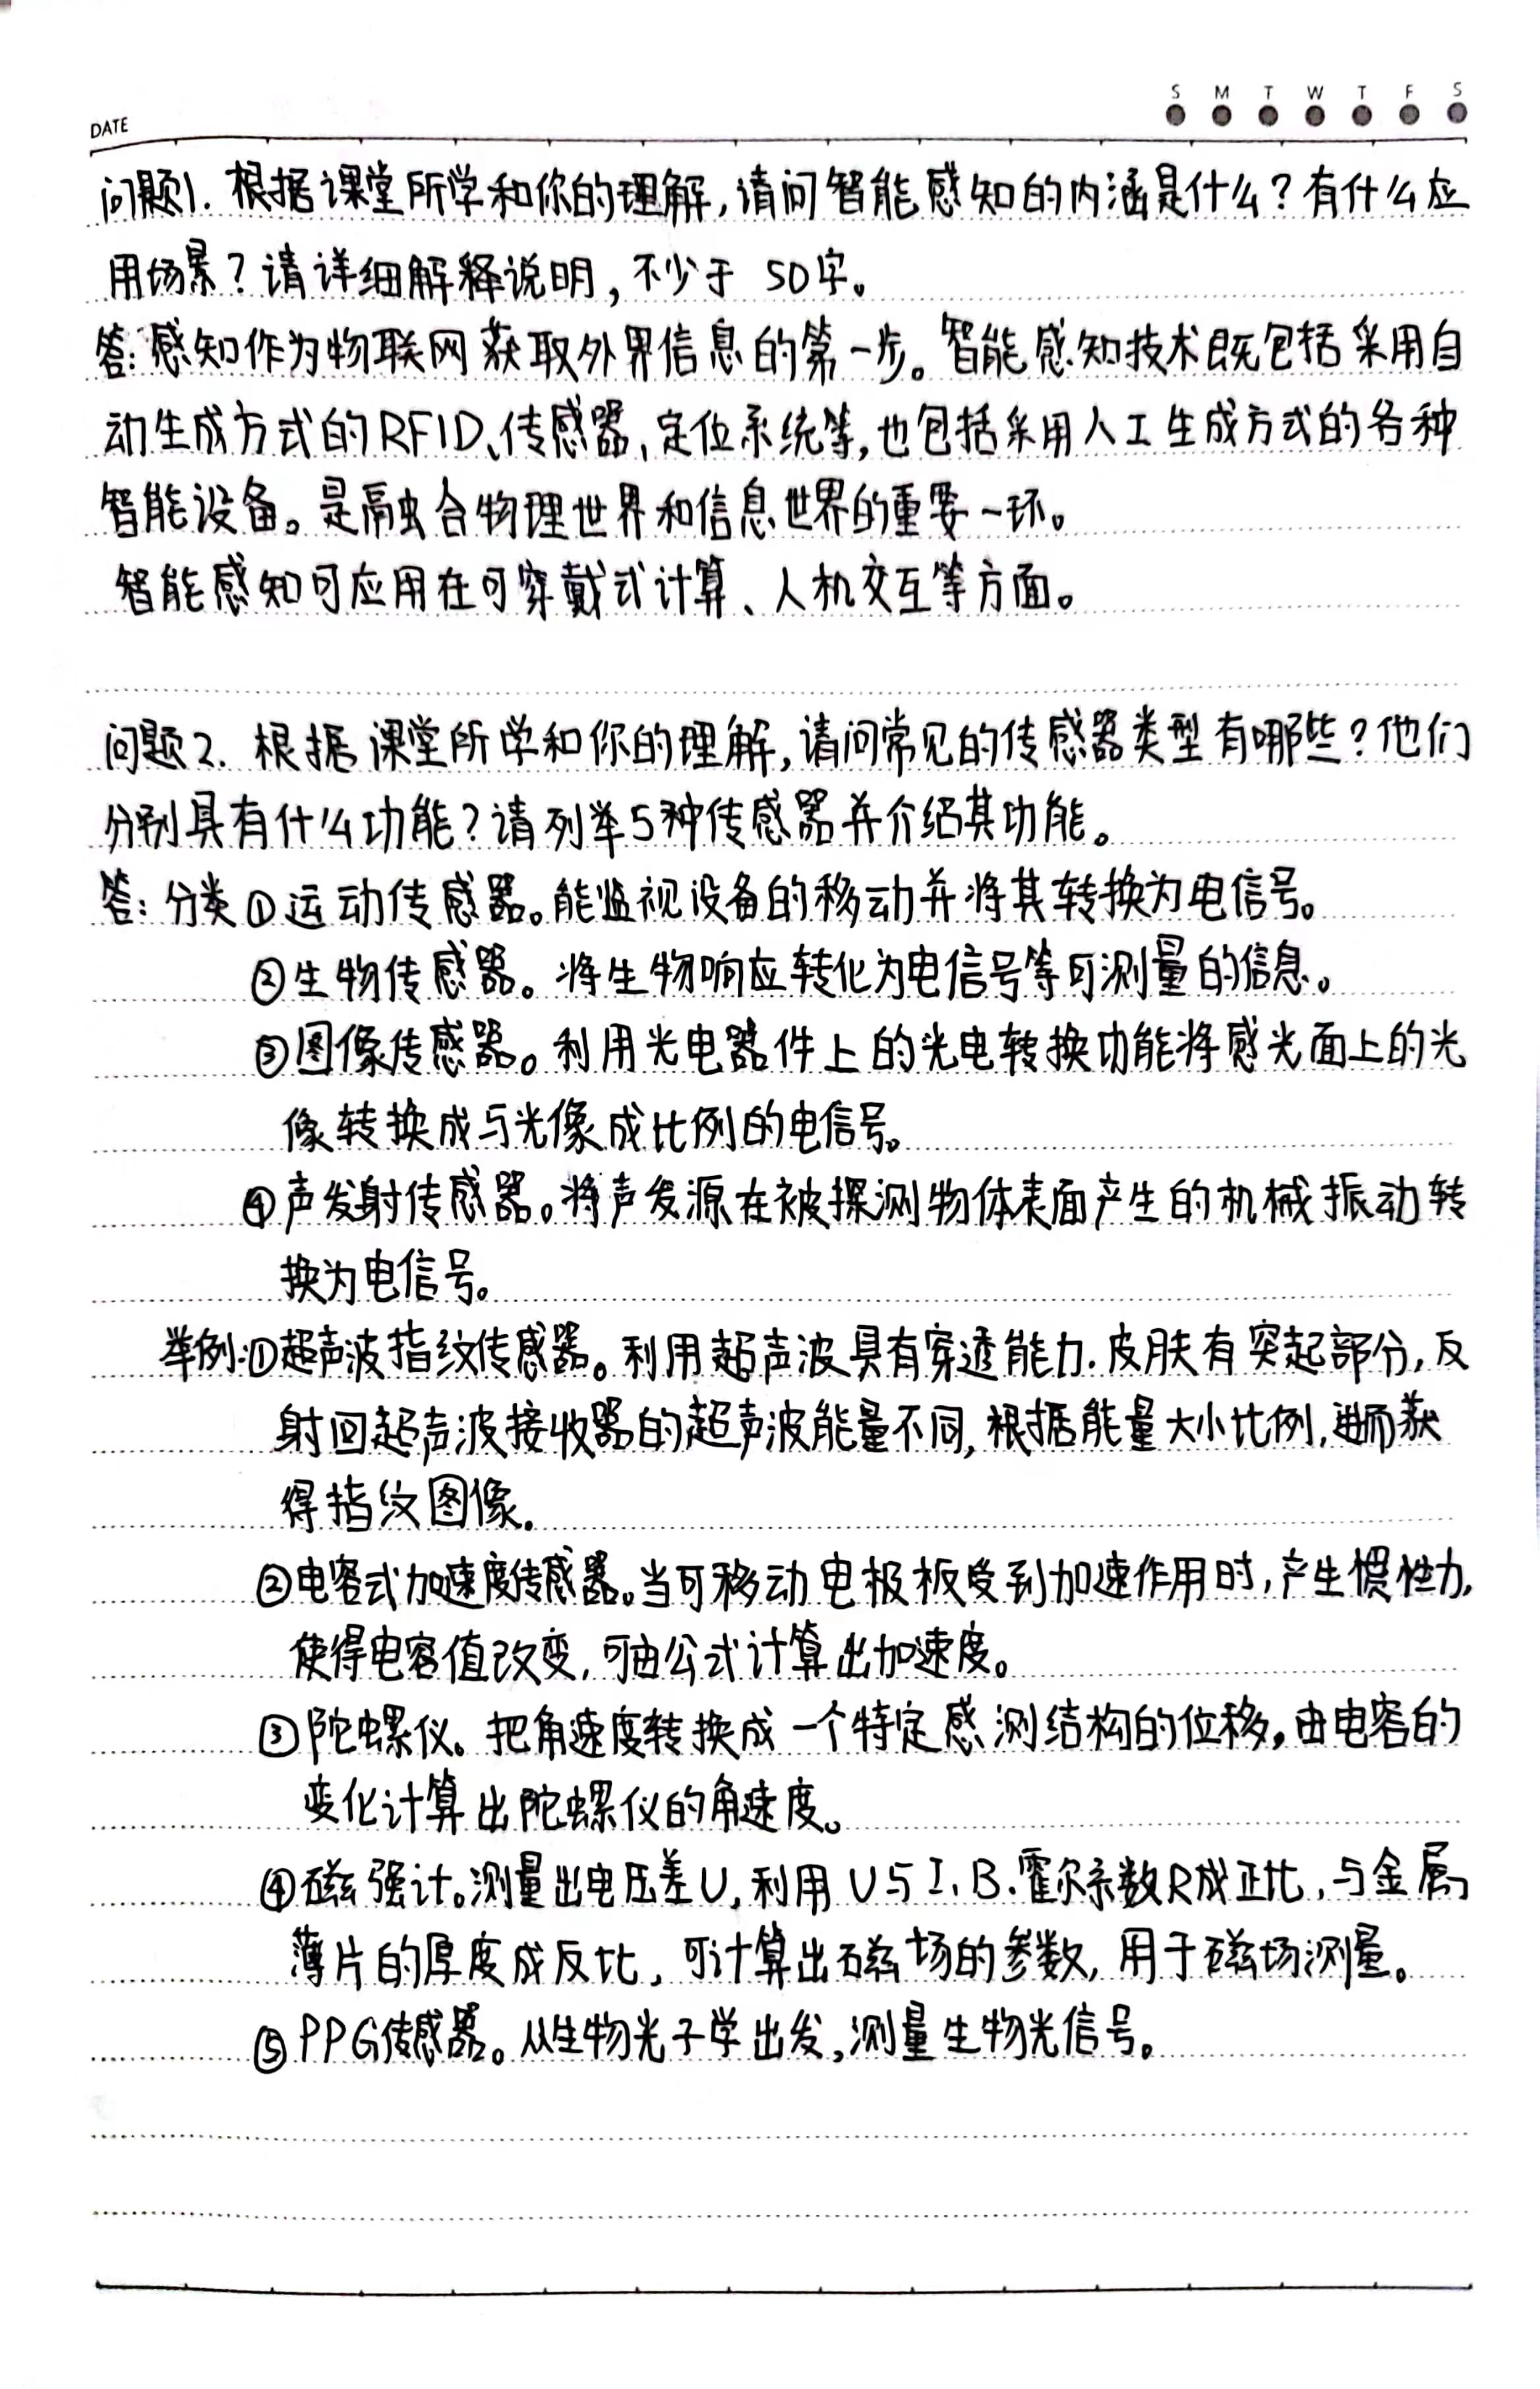 S M T W T F S
DATE
问题1. 根据课堂所学和你的理解,请问智能感知的内涵是什么?有什么应
用场景?请详细解释说明,不少于 50字。
答:感知作为物联网获取外界信息的第一步。智能感知技术既包括采用自
动生成方式的RFID、传感器、定位系统等,也包括采用人工生成方式的各种
智能设备。是融合物理世界和信息世界的重要一环。
智能感知可应用在可穿戴式计算、人机交互等方面。
问题2. 根据课堂所学和你的理解,请问常见的传感器类型有哪些?他们
分别具有什么功能?请列举5种传感器并介绍其功能。
答:分类①运动传感器。能监视设备的移动并将其转换为电信号。
②生物传感器。将生物响应转化为电信号等可测量的信息。
③图像传感器。利用光电器件上的光电转换功能将感光面上的光
像转换成与光像成比例的电信号。
④声发射传感器。将声发源在被探测物体表面产生的机械振动转
换为电信号。
举例:①超声波指纹传感器。利用超声波具有穿透能力.皮肤有突起部分,反
射回超声波接收器的超声波能量不同,根据能量大小比例,进而获
得指纹图像.
②电容式加速度传感器。当可移动电极板受到加速作用时,产生惯性力,
使得电容值改变,可由公式计算出加速度。
③陀螺仪。把角速度转换成一个特定感测结构的位移,由电容的
变化计算出陀螺仪的角速度。
④磁强计。测量出电压差U,利用U与I、B、霍尔系数R成正比,与金属
薄片的厚度成反比,可计算出磁场的参数,用于磁场测量。
⑤PPG传感器。从生物光子学出发,测量生物光信号。